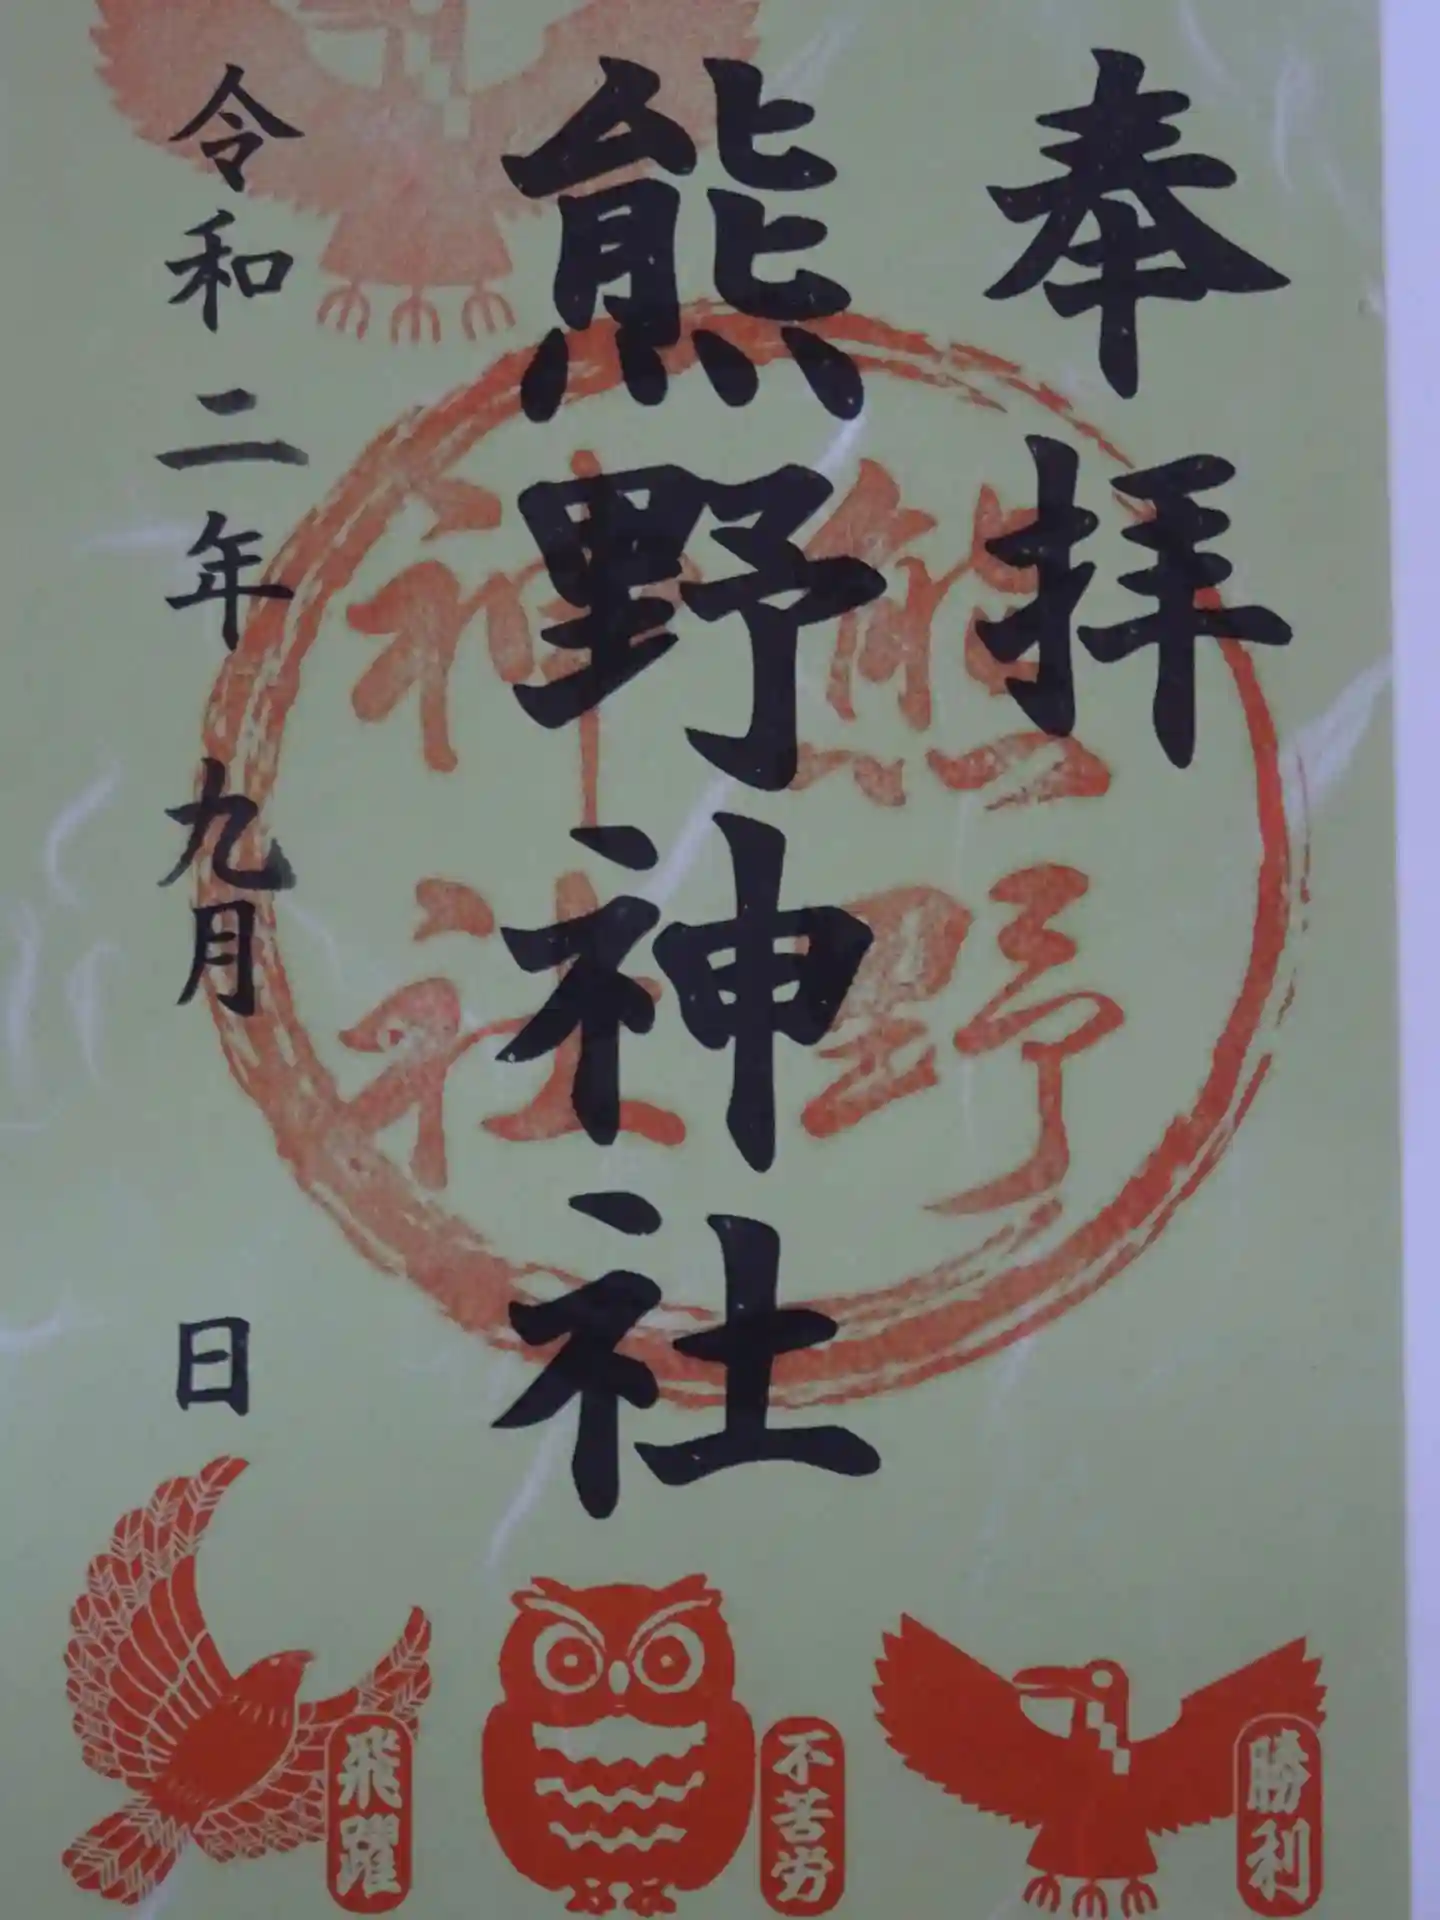 奉拝
熊野神社
熊野
神社
令和二年九月 日
勝利
不苦労
飛躍